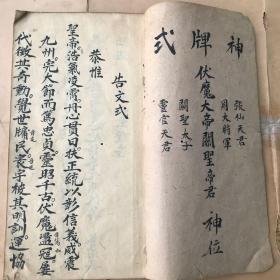 神牌式
張仙天君
周大將軍
伏魔大帝關聖帝君 神位
關聖太子
靈官天君
告文式
恭惟
聖帝浩氣凌霄丹心貫日扶正統以彰信義威震
九州完大節而篤忠貞靈昭千古伏魔盪寇屢
代徵其奇勳覺世牖民寰宇被其明訓運協